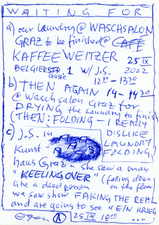 WAITING FOR
a) our laundry @ WASCHSALON
GRAZ to be finished @ CAFE
KAFFEE WEITZER 25 IX
BELGIERGASSE 1 w/ J.S. 2012
1230 - 1330
b) THEN AGAIN 14 - 1430
@ Wasch salon Graz for
DRYING the laundry to finish
(THEN: FOLDING - I REALLY
c) J.S. in DISLIKE
Kunst LAUNDRY
haus Graz - she saw a man FOLDING)
"KEELING OVER" (falling down
like a dead person on the floor)
we saw show FAKING THE REAL
and are going to see KEIN KRIEG
25 IX 18